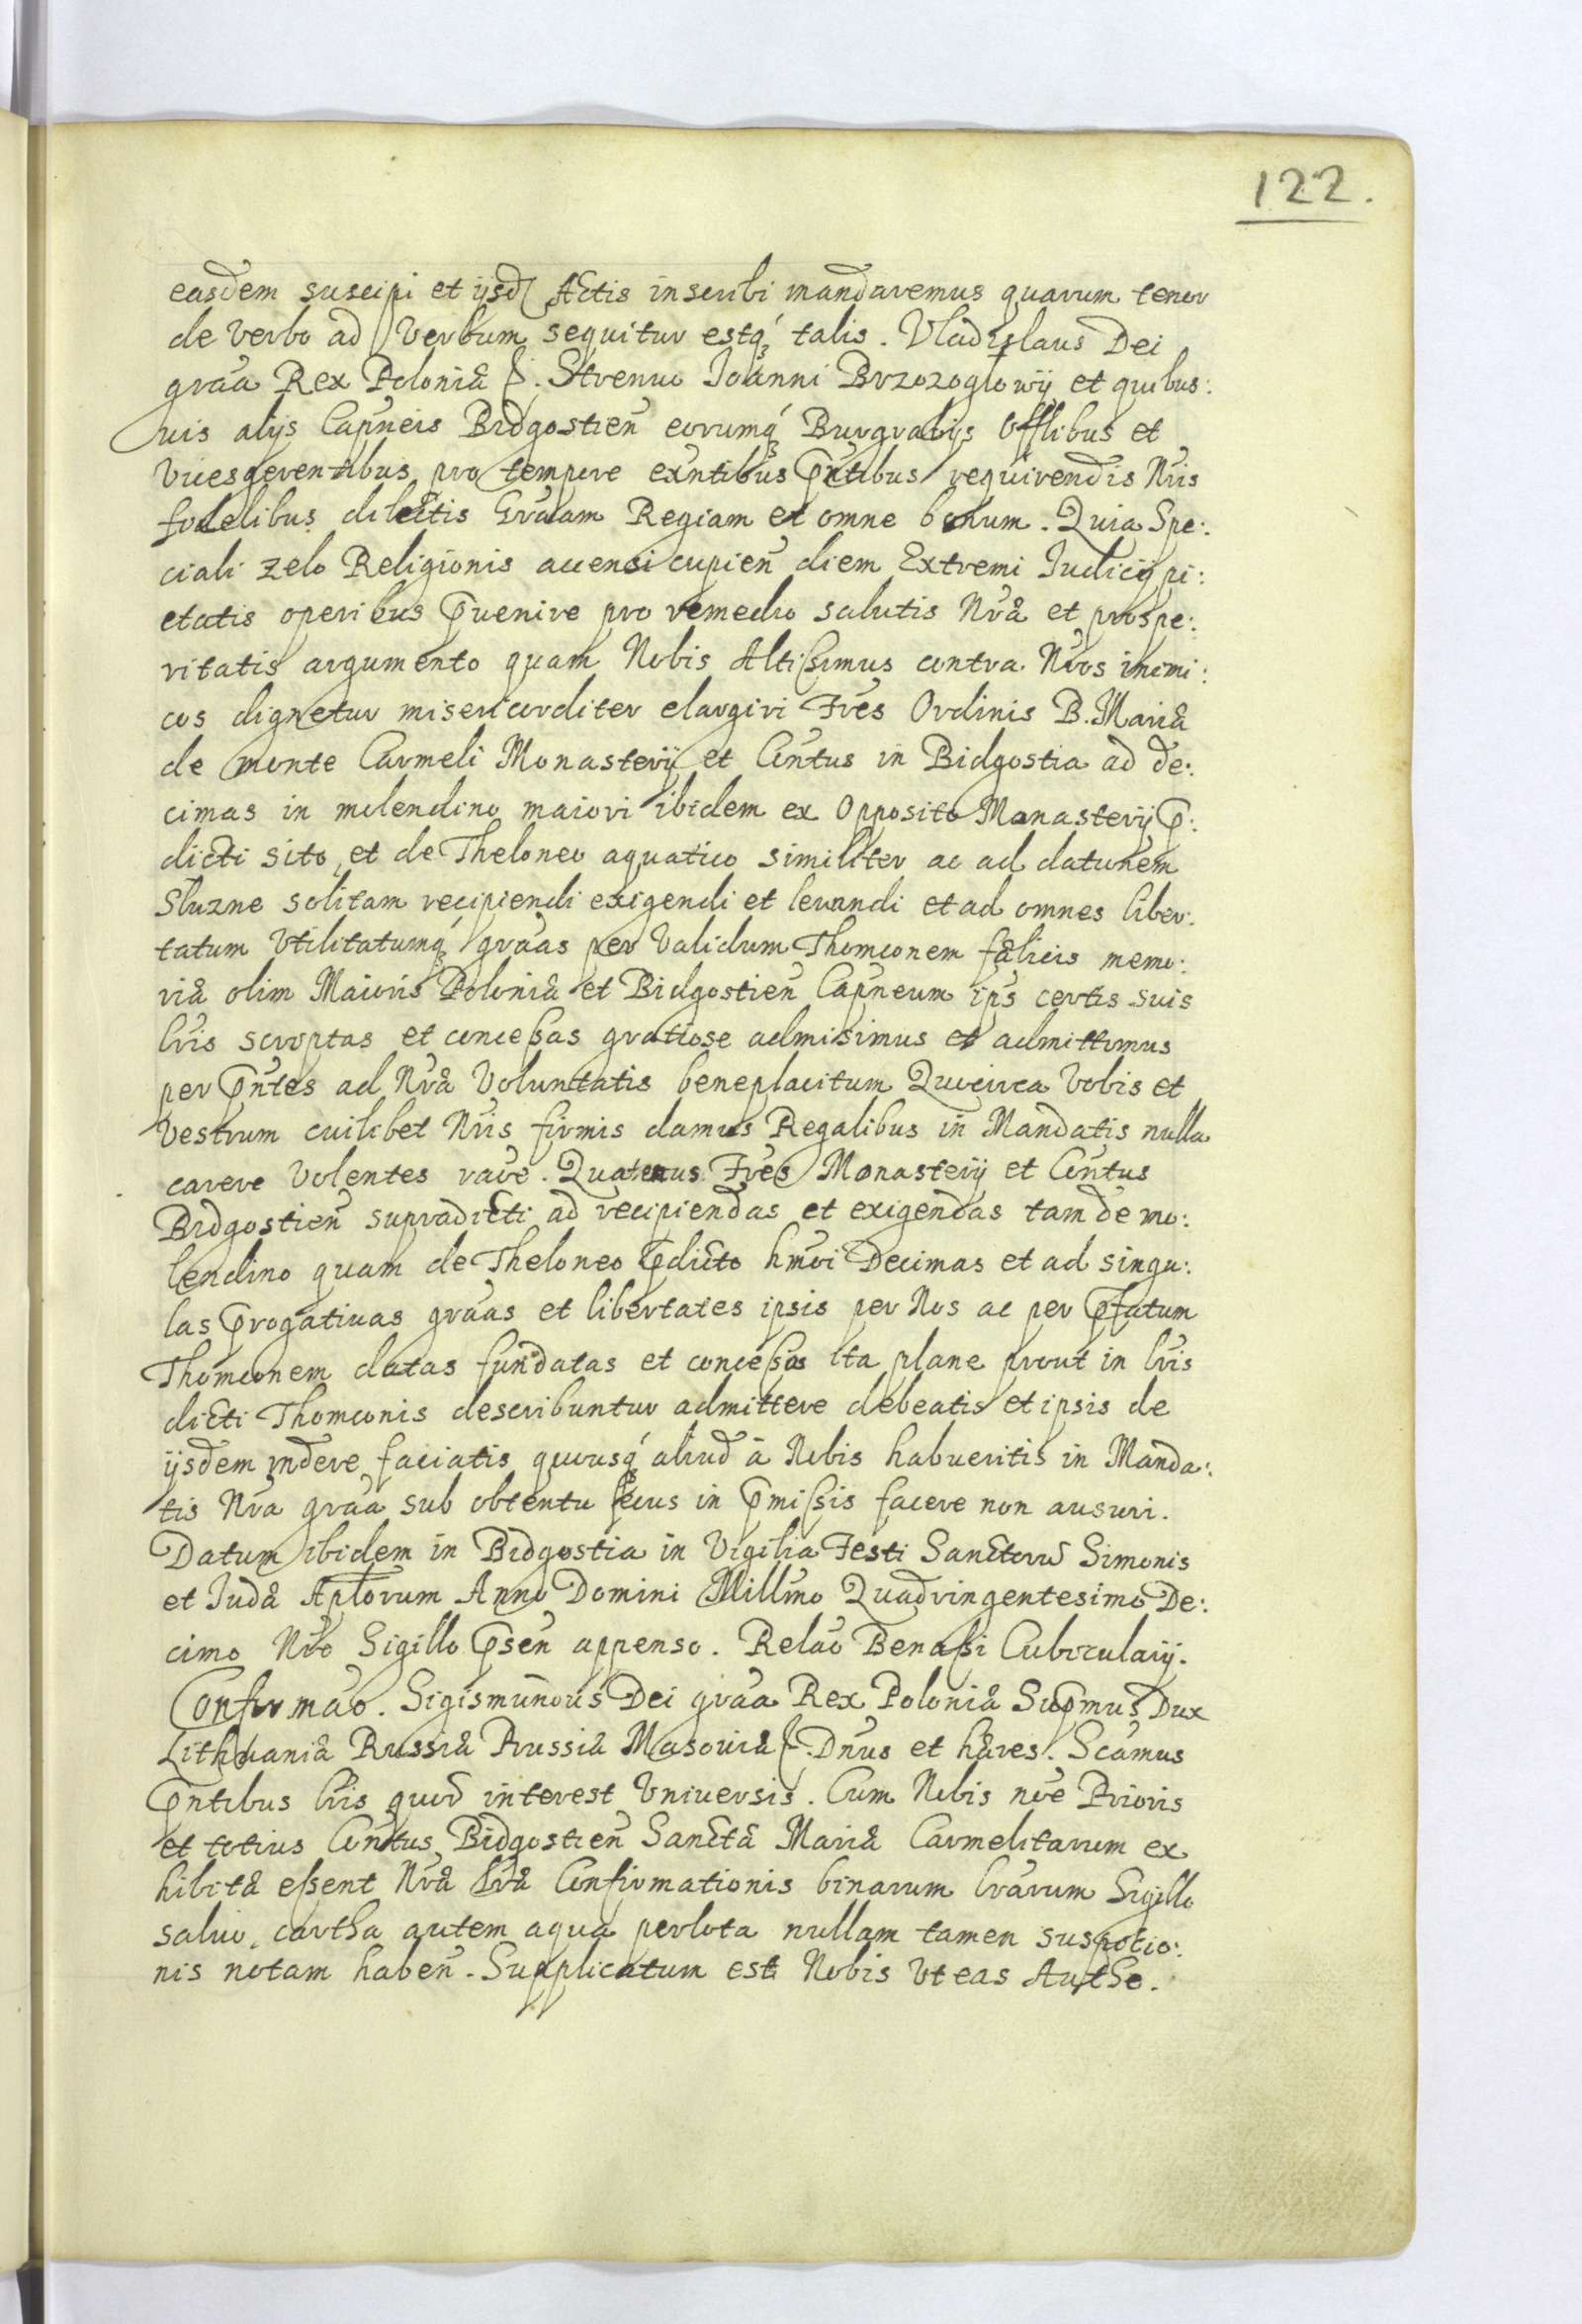 122.
easdem suscipi et ijsd Actis inscribi mandaremus quarum tenor
de verbo ad Verbum sequitur estq́ talis. Vladislaus Dei
gr̃aa Rex Poloniæ &. Strenuo Ioanni Brzozoglowij et quibus:
uis alijs Capñeis Bidgostien̄ eorumq́ Burgrabijs Offlibus et
Vicesgerentibus pro tempore exñtibus p̃ntibus requirendis Nr̃is
fidelibus dilectis Gr̃aam Regiam et omne bonum. Quia Spe:
ciali zelo Religionis accensi cupien̄ diem Extremi Iudicij pi:
etatis operibus p̃uenire pro remedio salutis Nr̃æ et prospe:
ritatis argumento quam Nobis Altissimus contra Nr̃os inimi:
cos dignetur misericorditer elargiri Fr̃es Ordinis B. Mariæ
de monte Carmeli Monasterij et Con̄tus in Bidgostia ad de:
cimas in molendino maiori ibidem ex Opposito Monasterij p̃:
dicti sito et de Theloneo aquatico similiter ac ad dationem
Sluzne solitam recipiendi exigendi et leuandi et ad omnes liber:
tatum Vtilitatumq́ gr̃aas per Validum Thomconem fælicis memo:
riæ olim Maioris Poloniæ et Bidgostien̄ Capñeum ip̃s certis suis
lr̃is scriptas et concessas gratiose admisimus et admittimus
per p̃ntes ad Nr̃æ Voluntatis beneplacitum Quocirca Vobis et
Vestrum cuilibet Nr̃is firmis damus Regalibus in Mandatis nulla
carere Volentes raõe. Quatenus Fr̃es Monasterij et Con̄tus
Bidgostien̄ supradicti ad recipiendas et exigendas tam de mo:
lendino quam de Theloneo p̃dicto hm̃oi Decimas et ad singu:
las p̃rogatiuas gr̃aas et libertates ipsis per Nos ac per p̃fatum
Thomconem datas fundatas et concessas Ita plane prout in lr̃is
dicti Thomconis describuntur admittere debeatis et ipsis de
ijsdem rndere faciatis quousq́ aliud à Nobis habueritis in Manda:
tis Nr̃a gr̃aa sub obtentu secus in p̃missis facere non ausuri.
Datum ibidem in Bidgostia in Vigilia Festi Sanctorū Simonis
et Iudæ Apl̃orum Anno Domini Millm̃o Quadringentesimo De:
cimo Nr̃o Sigillo p̃sen̄ appenso. Relaõ Benassi Cubicularij.
Confirmaõ. Sigismundus Dei gr̃aa Rex Poloniæ Sup̃mus Dux
Lithuaniæ Russiæ Prussiæ Masouiæ &. Dñus et hæres. Scãmus
p̃ntibus lr̃is quor̃ interest Vniuersis. Cum Nobis nõe Prioris
et totius Con̄tus Bidgostien̄ Sanctæ Mariæ Carmelitarum ex
hibitæ essent Nr̃æ lr̃æ Confirmationis binarum lr̃arum Sigillo
saluo, cartha autem aqua perlota nullam tamen suspitio:
nis notam haben̄. Supplicatum est Nobis Vt eas Authe.